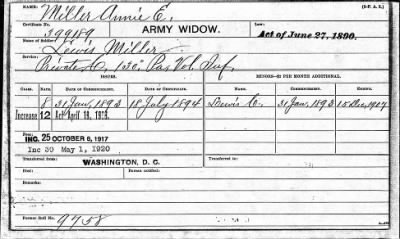 NAME: Miller Annie E. [D.-P. A. 2.]
Certificate No. 399189 ARMY WIDOW. Act of June 27, 1890.
Name of Soldier: Lewis Miller
Service: Private C, 130" Pa Vol. Inf.
ISSUES. MINORS—$2 PER MONTH ADDITIONAL.
CLASS. RATE. DATE OF COMMENCEMENT. DATE OF CERTIFICATE. NAME. COMMENCING. ENDING.
8 31 Jan, 1893 18 July 1894 Lewis C. 31 Jan, 1893 15 Dec, 1907
Increase 12 Act April 19, 1908.
INC. 25 OCTOBER 6, 1917
Inc 30 May 1, 1920
Transferred from WASHINGTON, D. C. Transferred to
Date of death: Bureau notified:
Remarks:
Former Roll No. 9758